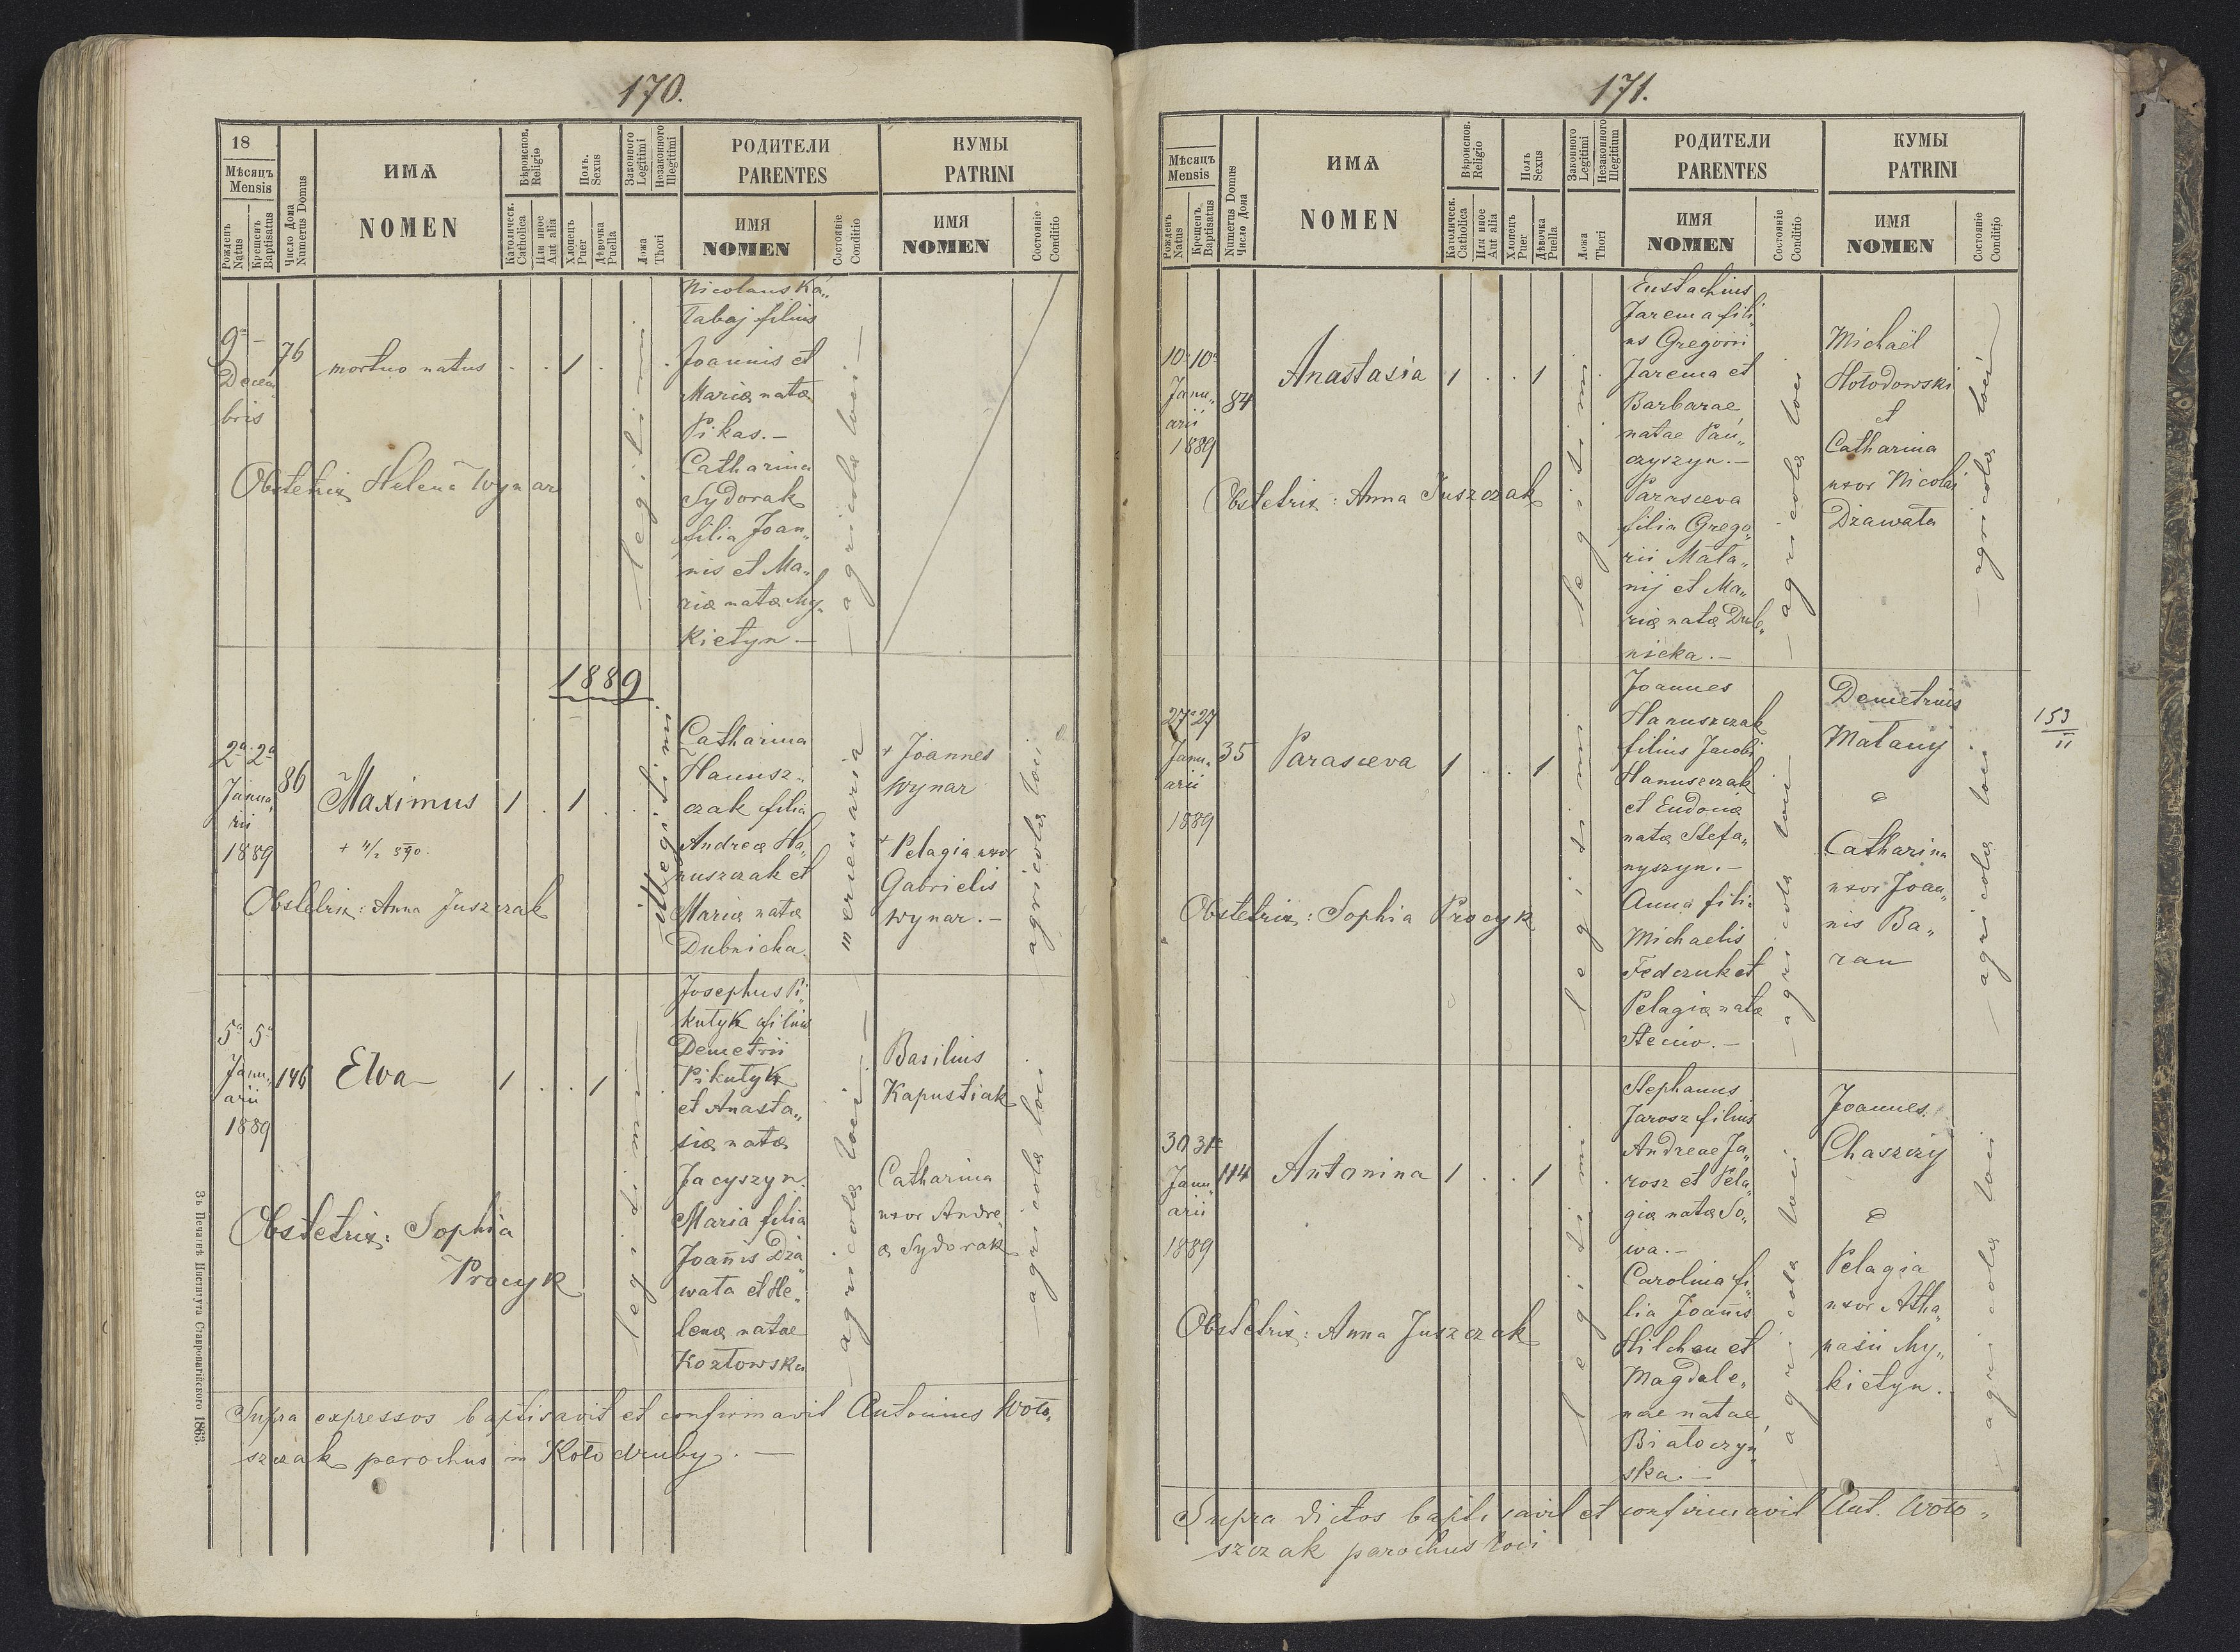 170.
18
Мѣсяцъ
Mensis
Рожденъ
Natus
Крещенъ
Baptisatus
Число Дома
Numerus Domus
ИМѦ
NOMEN
Вѣроиспов.
Religio
Католическ.
Catholica
Или иное
Aut alia
Полъ.
Sexus
Хлопецъ
Puer
Дѣвочка
Puella
Законного
Legitimi
Незаконного
Illegitimi
Ложа
Thori
РОДИТЕЛИ
PARENTES
ИМЯ
NOMEN
Состояніе
Conditio
КУМЫ
PATRINI
ИМЯ
NOMEN
Состояніе
Conditio
9a –
Decem
bris
76
mortuo natus . . 1 .
legitimi
Nicolaus Ka„
tabaj filius
Joannis et
Mariæ natæ
Pikas. –
Catharina
Sydorak
filia Joan„
nis et Ma„
riæ natæ My„
kietyn –
– agricolæ loci –
Obstetrix Helena Wynar
1889
2a 2a
Janua„
rii
1889
86
Maximus 1 . 1 .
+ 11/2 890.
illegitimi
Catharina
Hanusz„
czak filia
Andreæ Ha„
nuszczak et
Mariæ natæ
Dubnicka.
mercenaria
+ Joannes
Wynar
+ Pelagia uxor
Gabrielis
Wynar. –
agricolæ loci
Obstetrix: Anna Juszczak
5a 5a
Janu„
arii
1889
146
Elva 1 . . 1
legitimi
Josephus Pi„
kutyk filius
Demetrii
Pikutyk
et Anasta„
siæ natæ
Jacyszyn.
Maria filia
Joañis Dza„
wała et He„
lenæ natae
Kozłowska
– agricolæ loci –
Basilius
Kapustiak
Catharina
uxor Andre„
æ Sydorak
– agricolæ loci
Obstetrix: Sophia
Procyk
Supra expressos baptisavit et confirmavit Antonius Woło„
szczak parochus in Kołodruby. –
Зъ Печатнѣ Института Ставропигійского 1863.
171.
Мѣсяцъ
Mensis
Рожденъ
Natus
Крещенъ
Baptisatus
Numerus Domus
Число Дома
ИМѦ
NOMEN
Вѣроиспов.
Religio
Католическ.
Catholica
Или иное
Aut alia
Полъ
Sexus
Хлопецъ
Puer
Дѣвочка
Puella
Законного
Legitimi
Незаконного
Illegitimi
Ложа
Thori
РОДИТЕЛИ
PARENTES
ИМЯ
NOMEN
Состояніе
Conditio
КУМЫ
PATRINI
ИМЯ
NOMEN
Состояніе
Conditio
10a 10a
Janu„
arii
1889
84
Anastasia 1 . . 1
legitimi
Eustachius
Jarema fili„
us Gregorii
Jarema et
Barbarae
natae Pań„
czyszyn. –
Parasceva
filia Grego„
rii Mata„
nij et Ma„
riæ natæ Dub„
nicka. –
– agricolæ loci
Michaël
Hołodowski
et
Catharina
uxor Nicolai
Dzawała
– agricolæ loci –
Obstetrix: Anna Juszczak
27a 27
Janu„
arii
1889
35
Parasceva 1 . . 1
legitimi
Joannes
Hanuszczak
filius Jacobi
Hanuszczak
et Eudociæ
natæ Stefa„
nyszyn. –
Anna fili:
Michaelis
Fedczuk et
Pelagiæ natæ
Steciw. –
– agricolæ loci –
Demetrius
Matanij
Catharina
uxor Joan„
nis Ba„
ran
– agricolæ loci
153
II
Obstetrix: Sophia Procyk
30 31a
Janu„
arii
1889
114
Antonina 1 . . 1
legitimi
Stephanus
Jarosz filius
Andreae Ja„
rosz et Pela„
giæ natæ So„
wa. –
Carolina fi„
lia Joañis
Hilchen et
Magdale„
nae natae
Białoczyń„
ska. –
agricolæ loci
Joannes
Chaszczij
Pelagia
uxor Atha„
nasii My„
kietyn.
agricolæ loci
Obstetrix: Anna Juszczak
Supra dictos baptisavit et confirmavit Ant. Woło„
szczak parochus loci